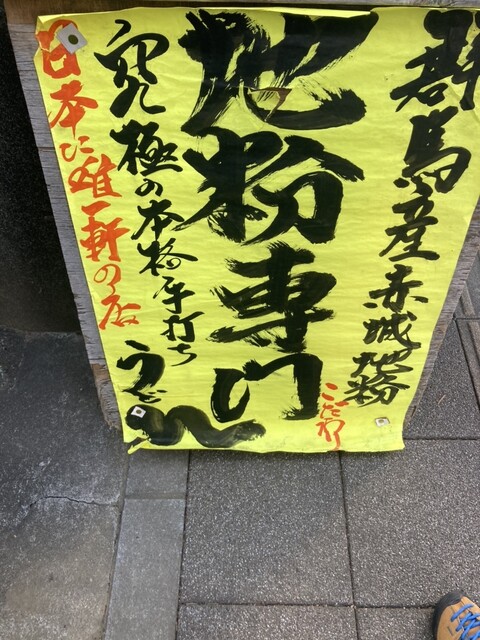 群馬産赤城地粉
こだわり
地粉専门
究極の本格手打ち
うどん
日本に唯一軒の店